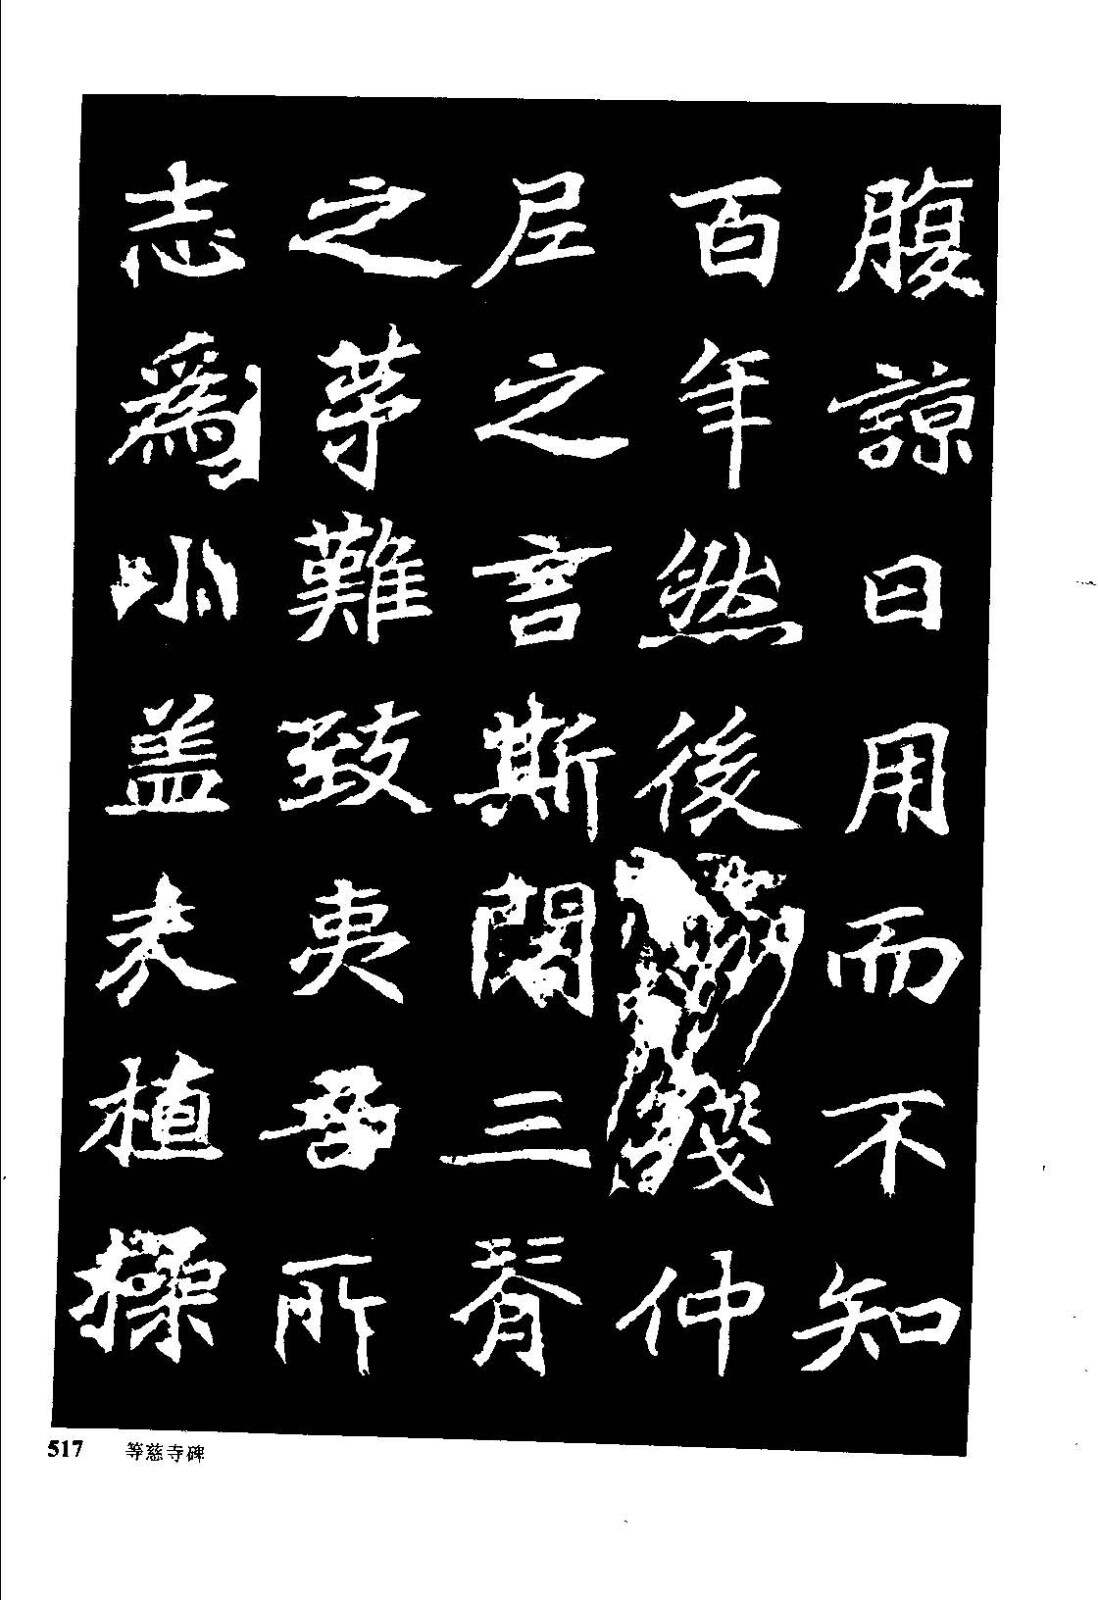 腹諒日用而不知
百年然後殘仲
尼之言斯闊三脊
之茅難致夷吾所
志爲小盖夫植操
517 等慈寺碑